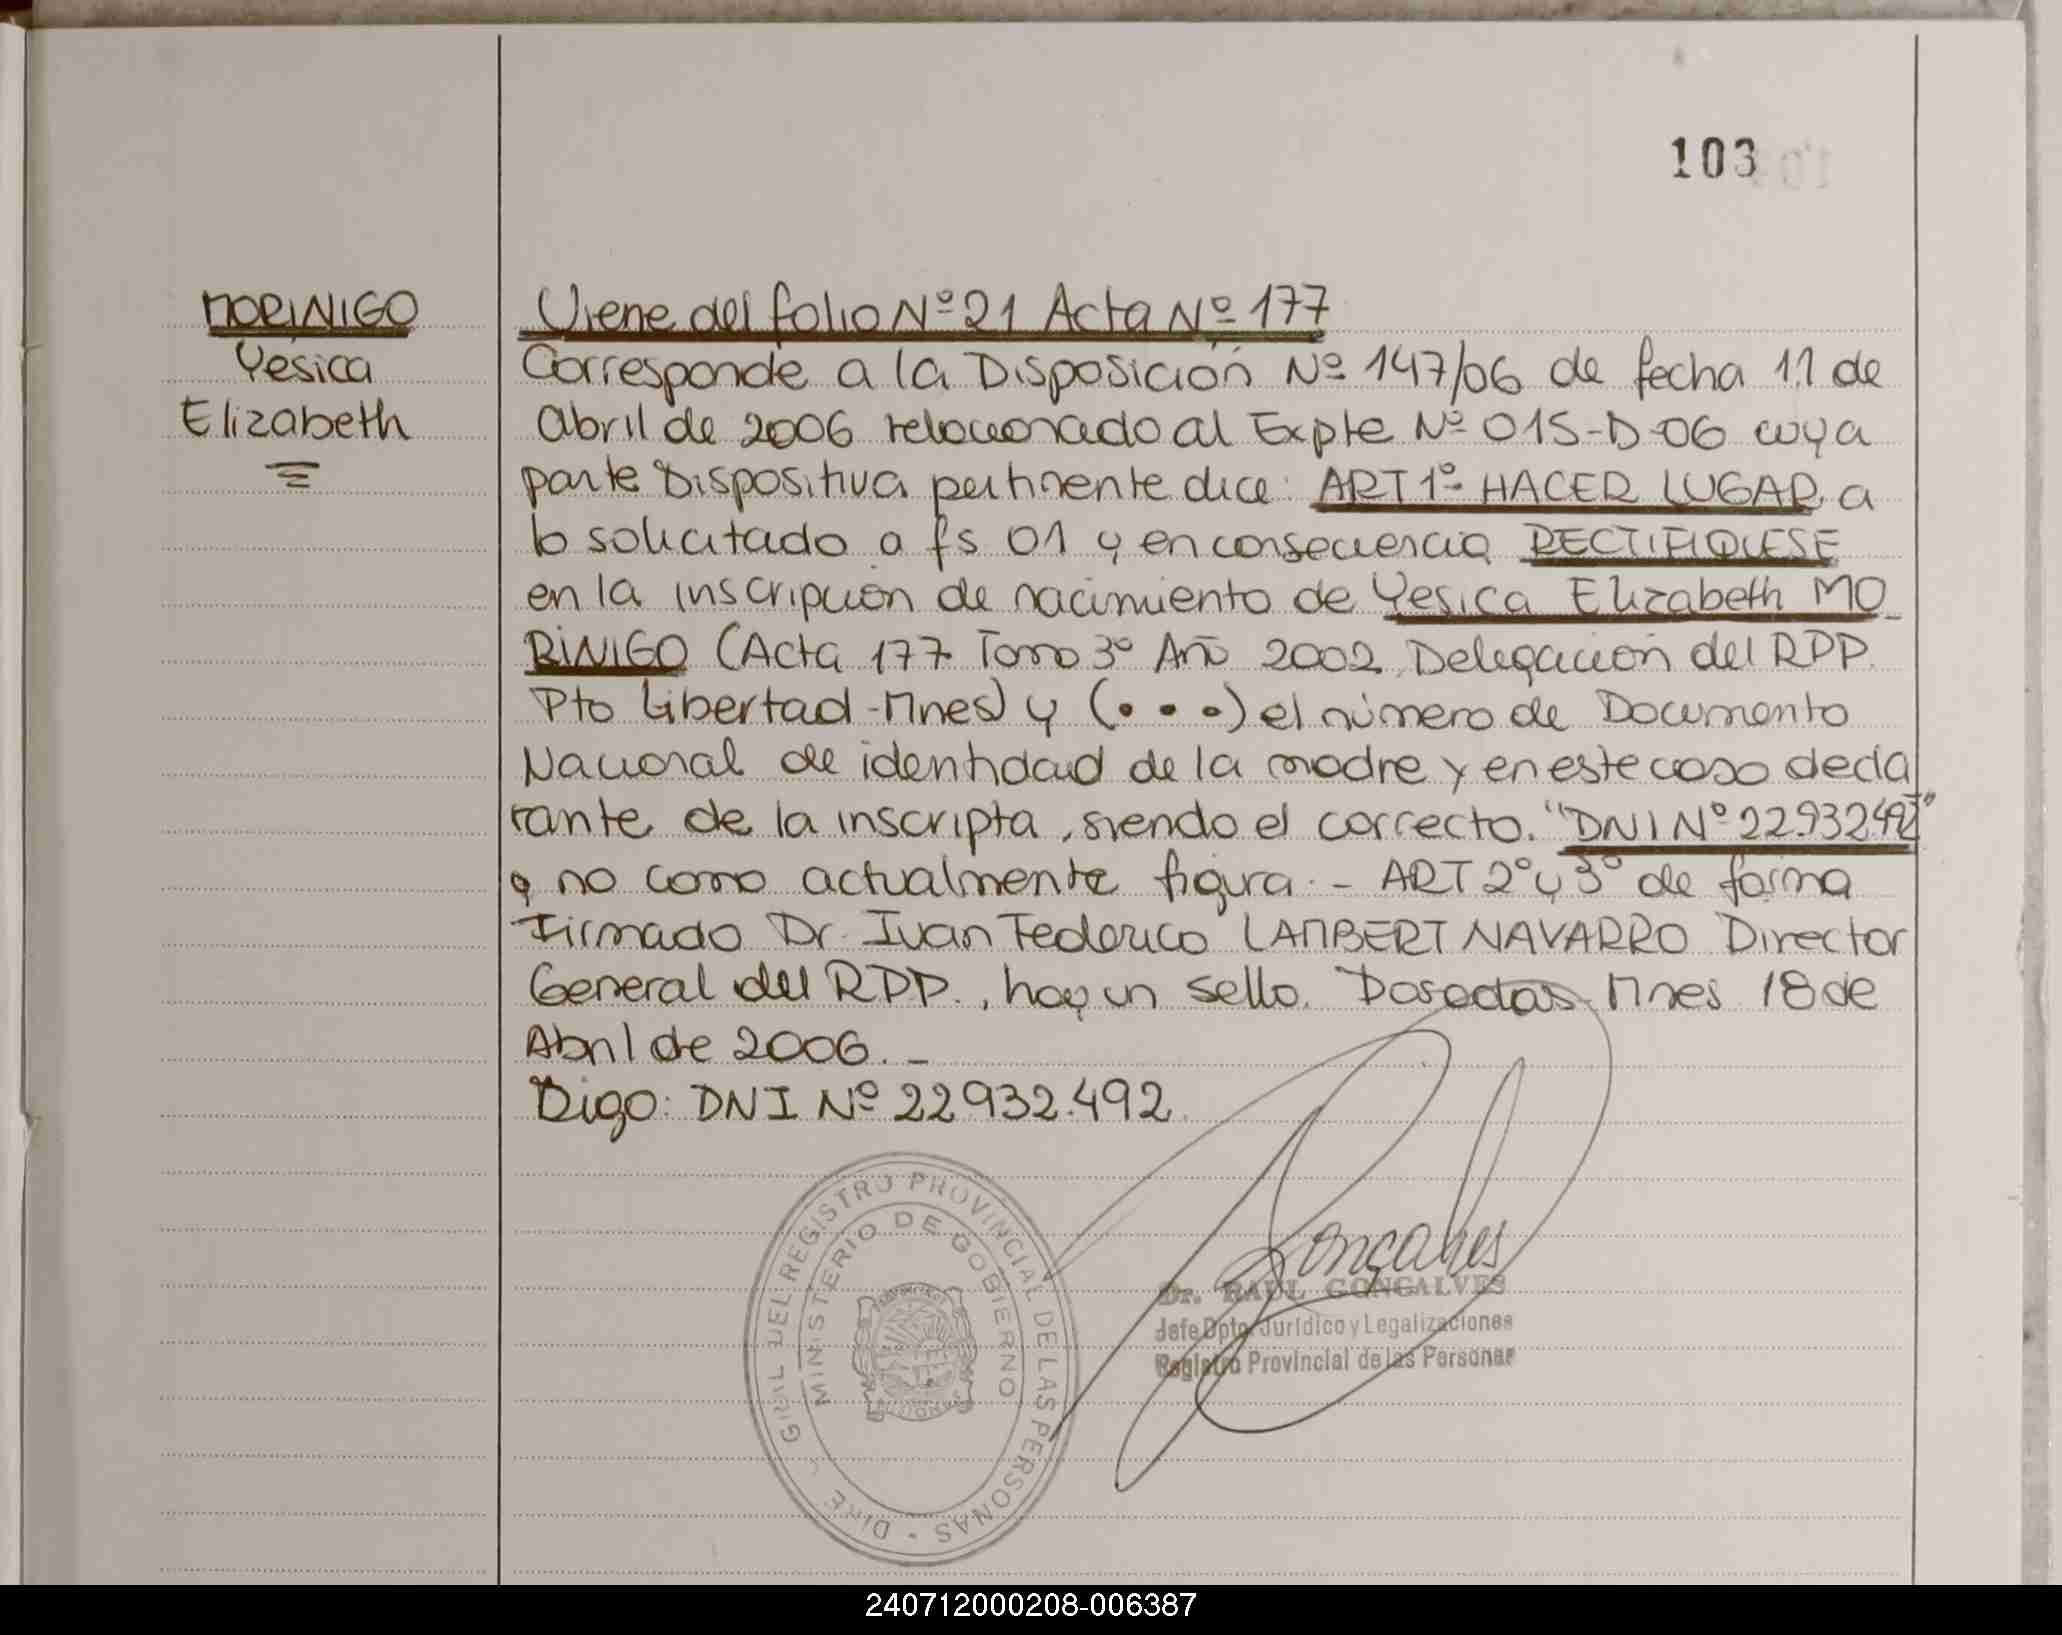 103
MORINIGO
Yesica
Elizabeth
Viene del folio Nº 21 Acta Nº 177
Corresponde a la Disposición Nº 147/06 de fecha 11 de
abril de 2006 relacionado al Expte Nº 015-D-06 cuya
parte Dispositiva pertinente dice: ART 1º HACER LUGAR a
lo solicitado a fs 01 y en consecuencia RECTIFIQUESE
en la inscripción de nacimiento de Yesica Elizabeth MO
RINIGO (Acta 177 Tomo 3º Año 2002 Delegación del RPP.
Pto Libertad-Mnes) y (...) el número de Documento
Nacional de identidad de la madre y en este caso decla
rante de la inscripta, siendo el correcto. "DNI Nº 22.932.492"
y no como actualmente figura.- ART 2º y 3º de forma
Firmado Dr. Ivan Federico LAMBERT NAVARRO Director
General del RPP., hay un sello. Posadas Mnes 18 de
Abril de 2006._
Digo: DNI Nº 22932.492.
DIRE GRAL DEL REGISTRO PROVINCIAL DE LAS PERSONAS
MINISTERIO DE GOBIERNO
Gonçalves
Dr. RAUL GONCALVES
Jefe Dpto. Jurídico y Legalizaciones
Registro Provincial de las Personas
240712000208-006387